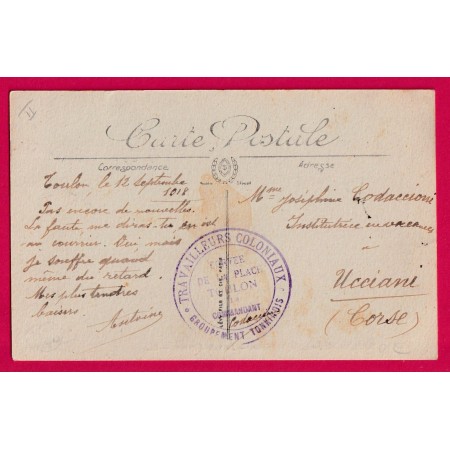 Carte Postale
Correspondance
Adresse
Toulon, le 12 Septembre
1918
Pas encore de nouvelles.
La faute me diras-tu en est
au courrier. Oui mais
je souffre quand
même du retard.
Mes plus tendres
baisers.
Antoine
Mme Joséphine Codaccioni
Institutrice en vacances
Ucciani
(Corse)
TRAVAILLEURS COLONIAUX
DE LA PLACE
TOULON
COMMANDANT
GROUPEMENT TONKINOIS